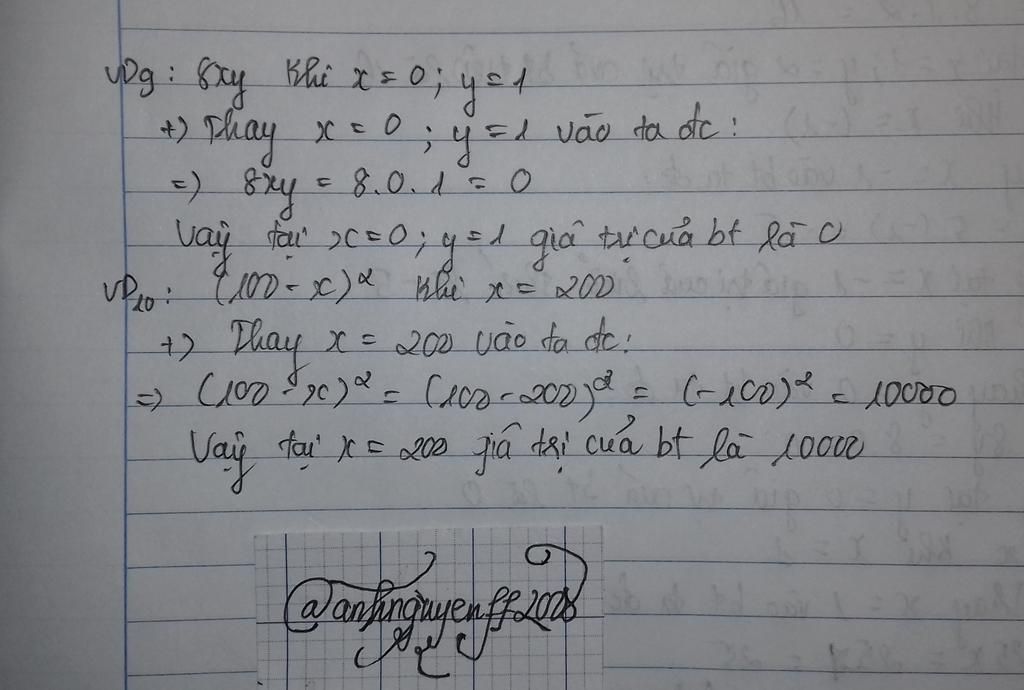 VD9: 8xy khi x = 0; y = 1
+) Thay x = 0; y = 1 vào ta đc:
=> 8xy = 8.0.1 = 0
Vậy tại x = 0; y = 1 giá trị của bt là 0
VD10: (100 - x)² khi x = 200
+) Thay x = 200 vào ta đc:
=> (100 - x)² = (100 - 200)² = (-100)² = 10000
Vậy tại x = 200 giá trị của bt là 10000
@anhnguyenff2008